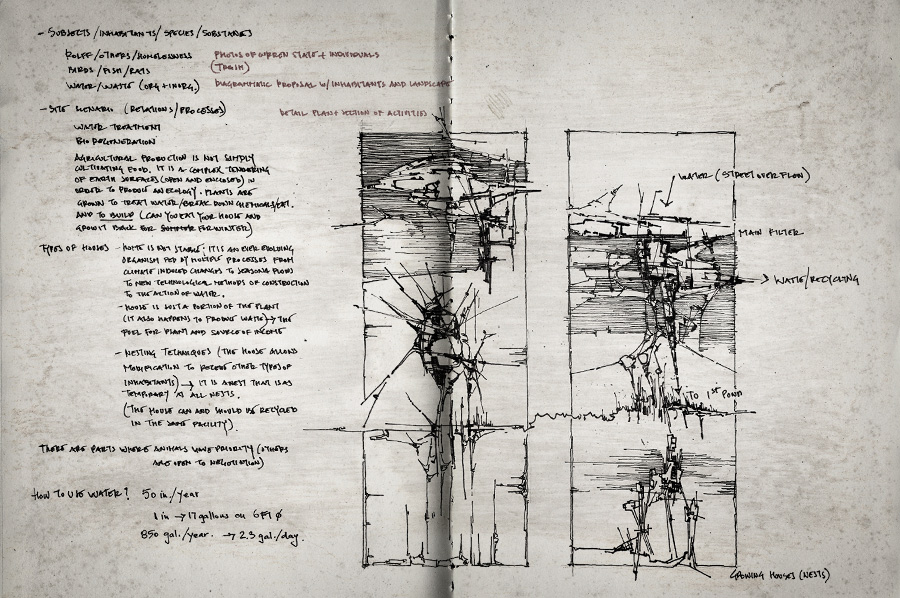 - SUBJECTS/INHABITANTS/SPECIES/SUBSTANCES
ROLFF/OTHERS/HOMELESSNESS PHOTOS OF CURREN STATE + INDIVIDUALS
BIRDS/FISH/RATS (TRASH)
WATER/WASTE (ORG + INORG.) DIAGRAMMATIC PROPOSAL W/INHABITANTS AND LANDSCAPE
- SITE SCENARIO (RELATIONS/PROCESSES) DETAIL PLAN + SECTION OF ACTIVITIES
WATER TREATMENT
BIO REGENERATION
AGRICULTURAL PRODUCTION IS NOT SIMPLY
CULTIVATING FOOD. IT IS A COMPLEX TENDERING
OF EARTH SURFACES (OPEN AND ENCLOSED) IN
ORDER TO PRODUCE AN ECOLOGY. PLANTS ARE
GROWN TO TREAT WATER/BREAK DOWN CHEMICALS/EAT.
AND TO BUILD (CAN YOU EAT YOUR HOUSE AND
GROW IT BACK FOR SUMMER FOR WINTER)
TYPES OF HOUSES - HOME IS NOT STABLE: IT IS AN EVER EVOLVING
ORGANISM FED BY MULTIPLE PROCESSES FROM
CLIMATE INDUCED CHANGES TO SEASONAL FLOWS
TO NEW TECHNOLOGICAL METHODS OF CONSTRUCTION
TO THE ACTION OF WATER.
- HOUSE IS JUST A PORTION OF THE PLANT
(IT ALSO HAPPENS TO PRODUCE WASTE) → THE
FUEL FOR PLANT AND SOURCE OF INCOME
- NESTING TECHNIQUES (THE HOUSE ALLOWS
MODIFICATION TO OTHER TYPES OF
INHABITANTS) → IT IS A NEST THAT IS AS
TEMPORARY AS ALL NESTS.
(THE HOUSE CAN AND SHOULD BE RECYCLED
IN THE SAME FACILITY).
THERE ARE PARTS WHERE ANIMALS HAVE PRIORITY (OTHERS
ARE OPEN TO NEGOTIATION)
HOW TO USE WATER? 50 in./year
1 in → 17 gallons on 6FT Ø
850 gal./year. → 2.3 gal./day.
WATER (STREET OVERFLOW)
MAIN FILTER
WASTE/RECYCLING
TO 1ST POND
GROWING HOUSES (NESTS)